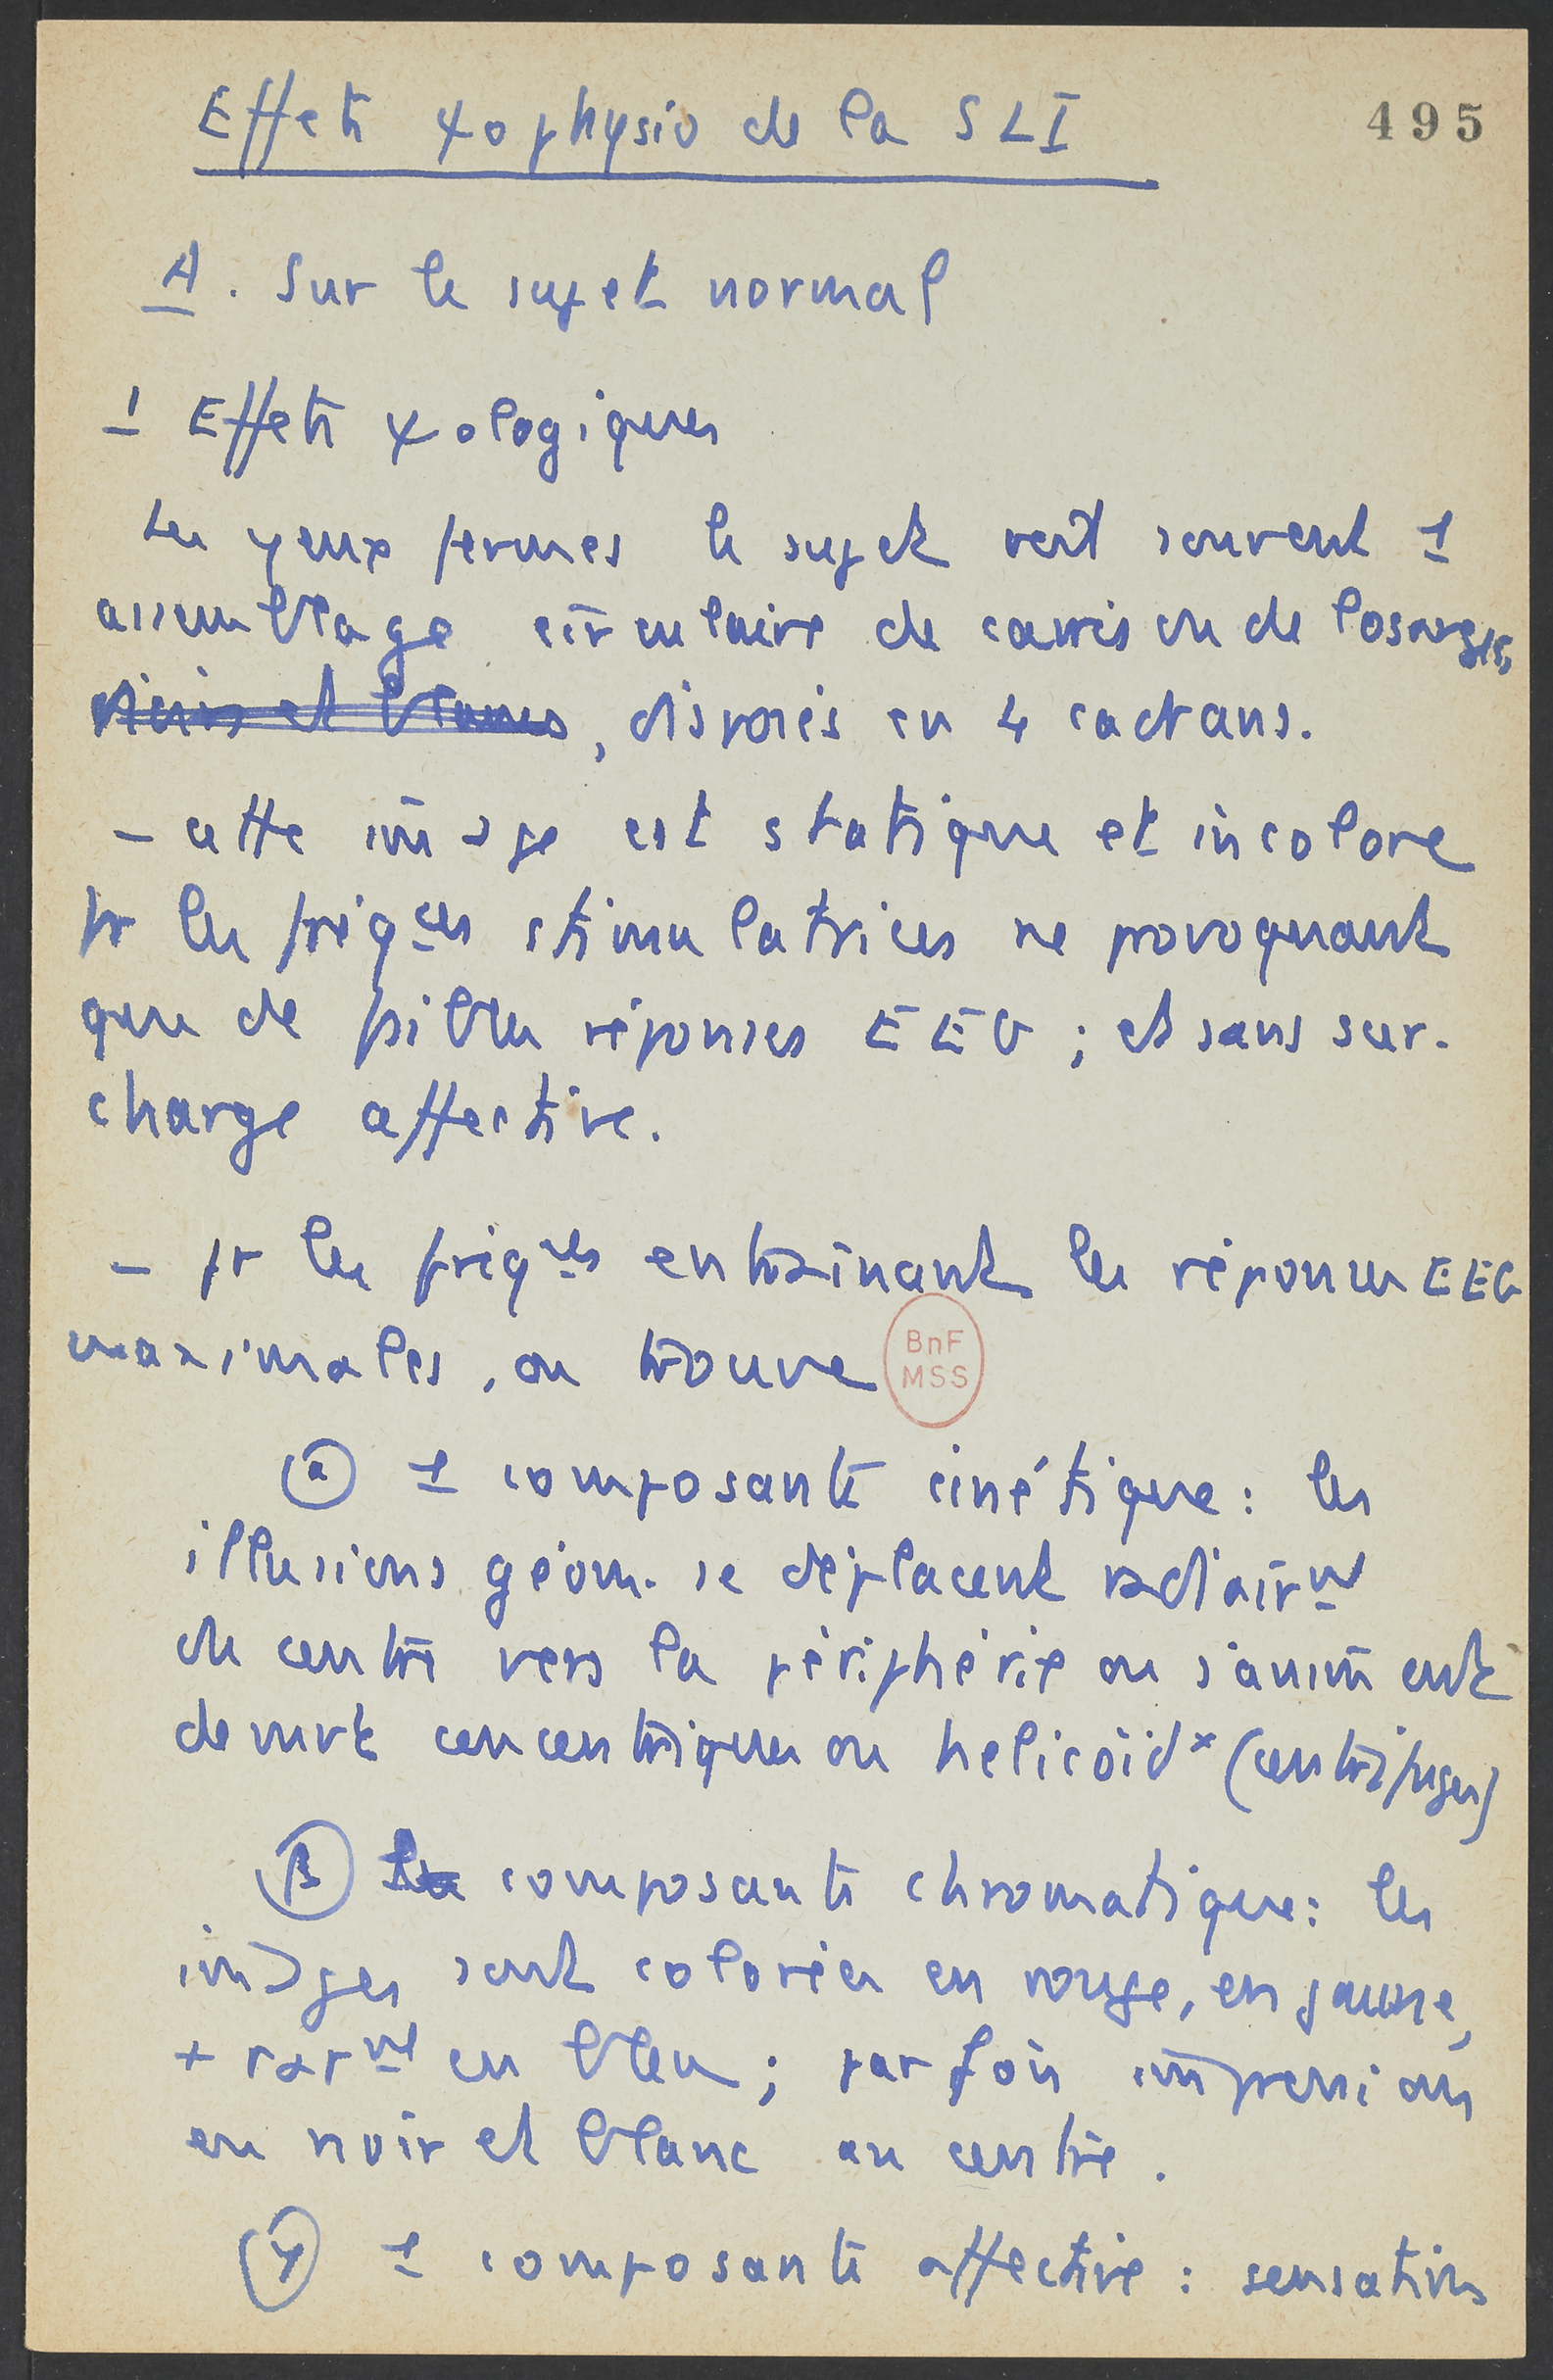 Effets ψophysio de la SLI
495
A. Sur le sujet normal
1 Effets ψologiques
Les yeux fermés le sujet voit souvent 1
assemblage circulaire de carrés ou de losanges,
noirs et blancs, disposés en 4 cadrans.
- cette image est statique et incolore
pr les fréqces stimulatrices ne provoquant
que de faibles réponses EEG ; et sans sur-
charge affective.
- pr les fréqces entrainant les réponses EEG
maximales, on trouve
BnF
MSS
α 1 composante cinétique : les
illusions géom. se déplacent radiairnt
du centre vers la périphérie ou s'animent
de mvt concentriques ou helicoïdx (centrifuges)
β la composante chromatique : les
images sont colorées en rouge, en jaune,
+ rarnt en bleu ; parfois impression
en noir et blanc au centre.
γ 1 composante affective : sensations